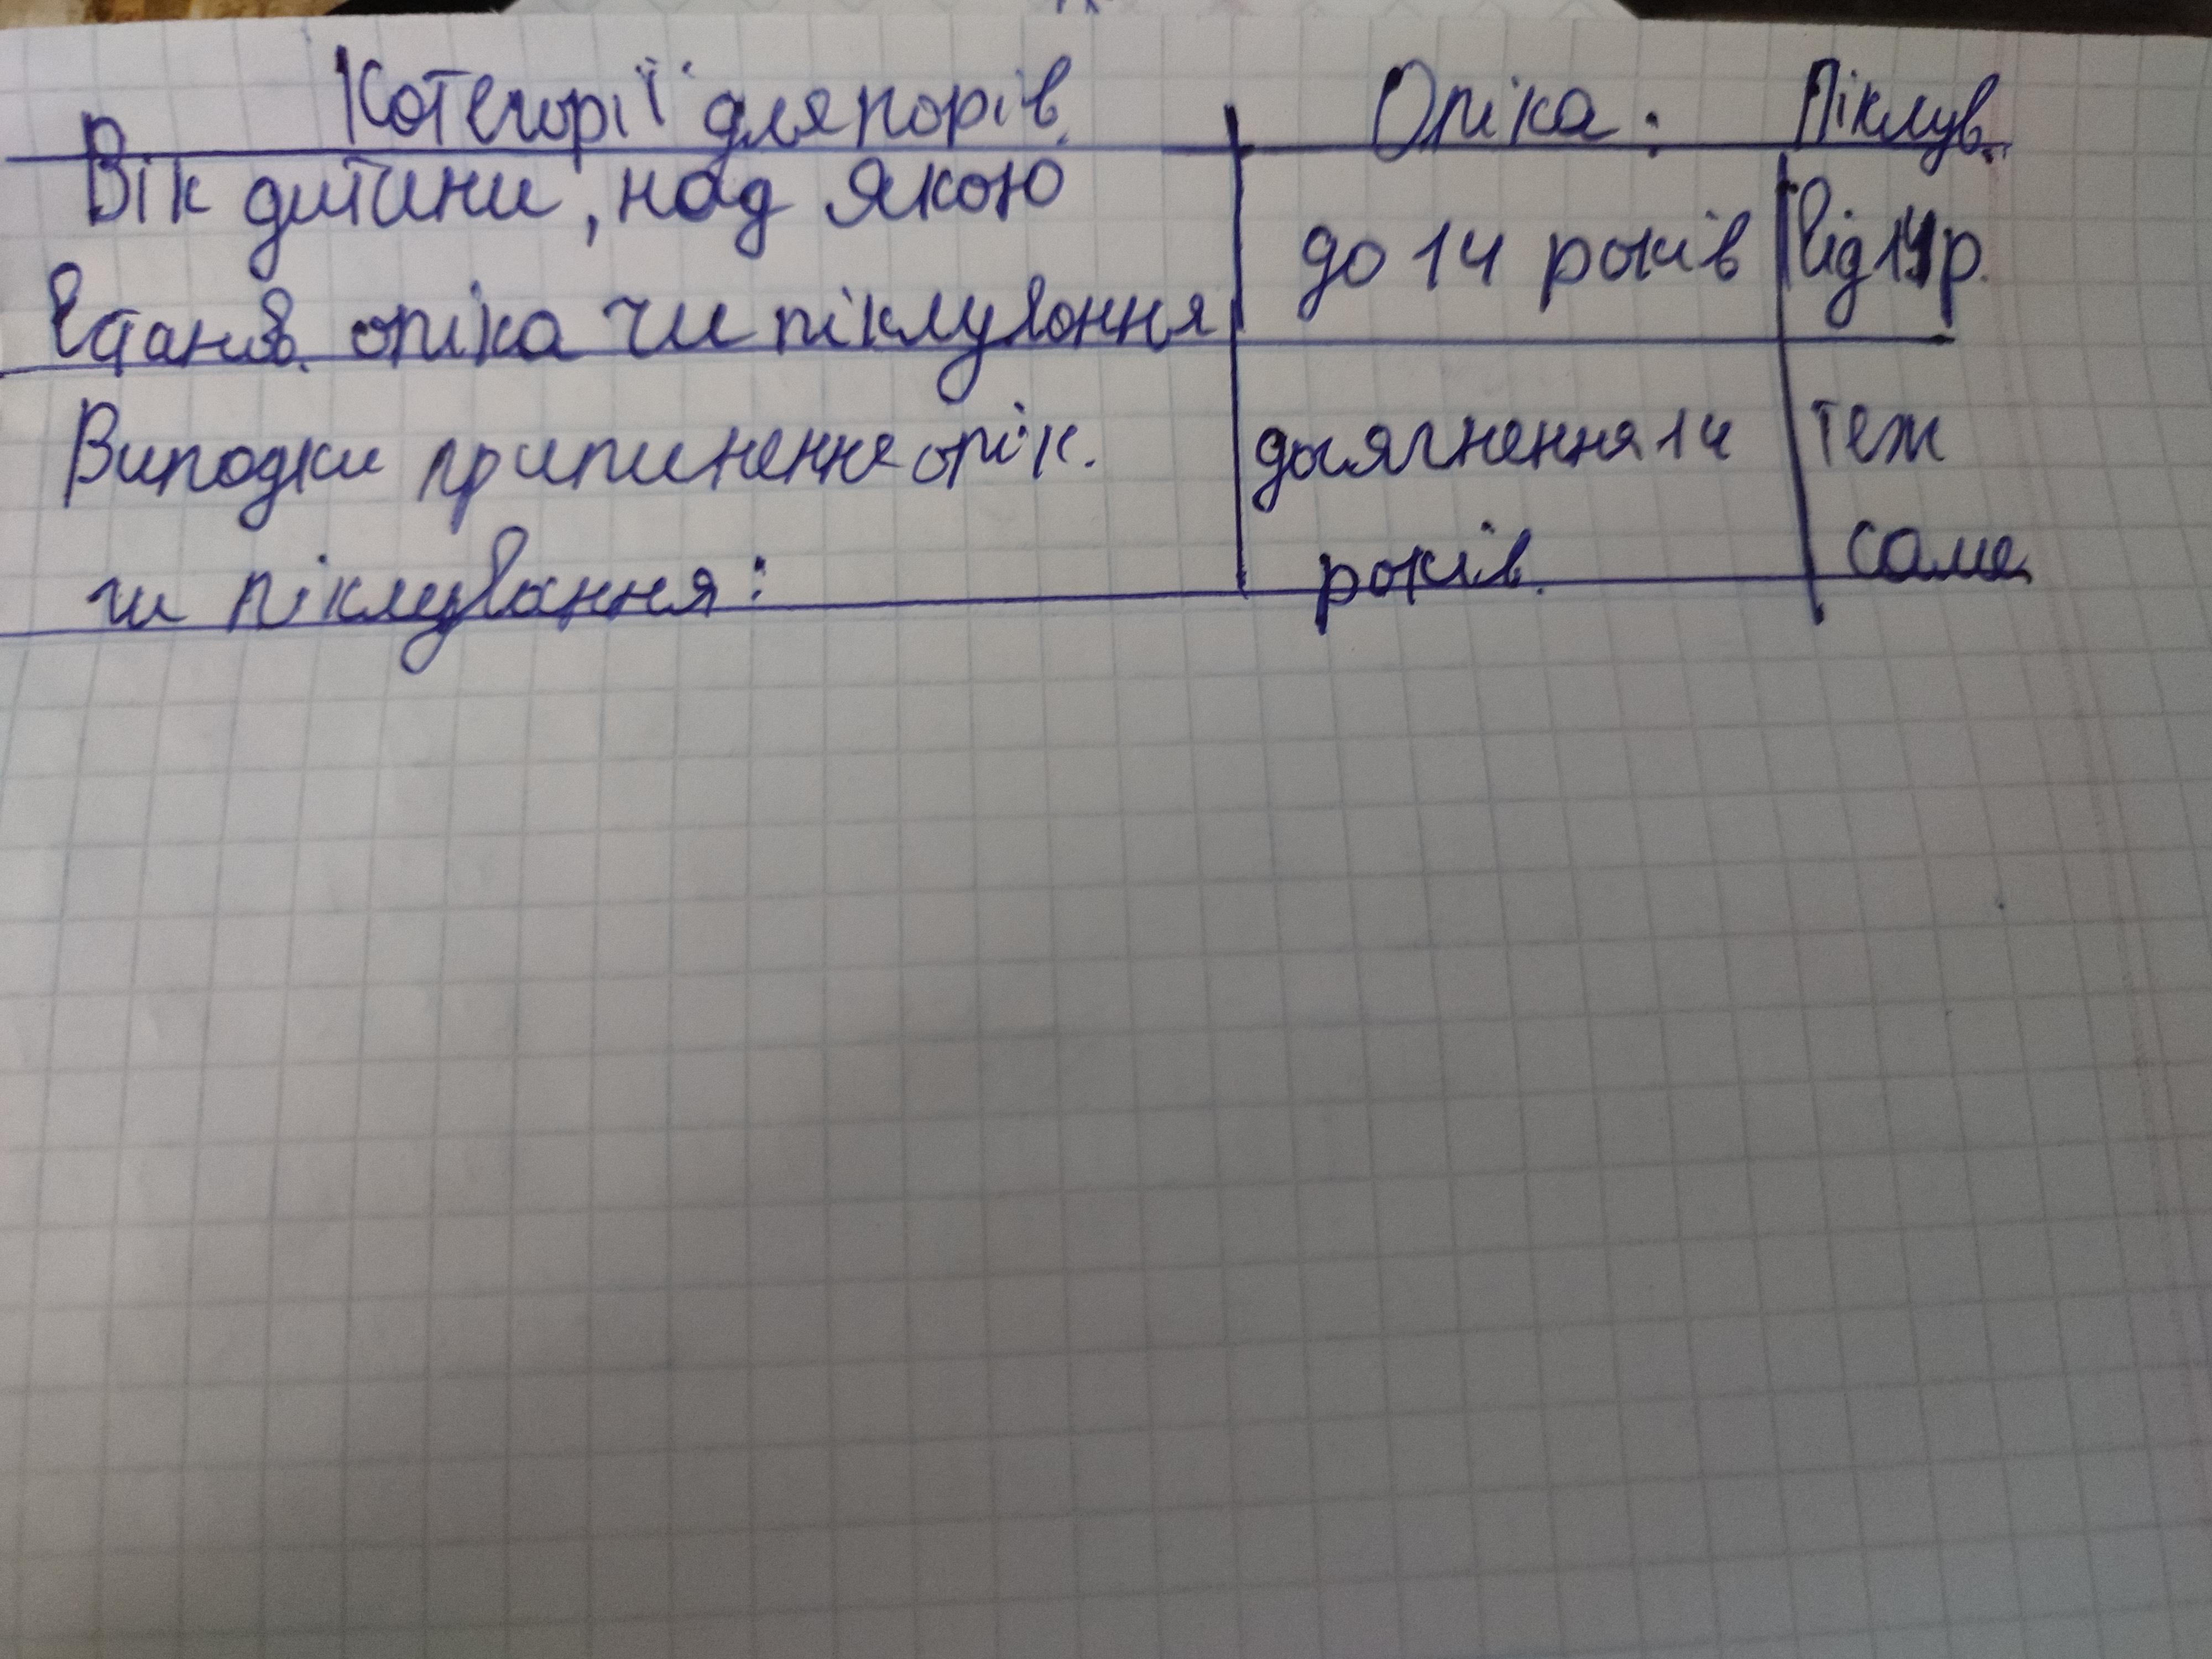 Категорії для порів. Опіка: Піклув.
Вік дитини, над якою
до 14 років від 14 р.
встанов. опіка чи піклування
Випадки припинення опік. досягнення 14 теж
чи піклування: років. саме